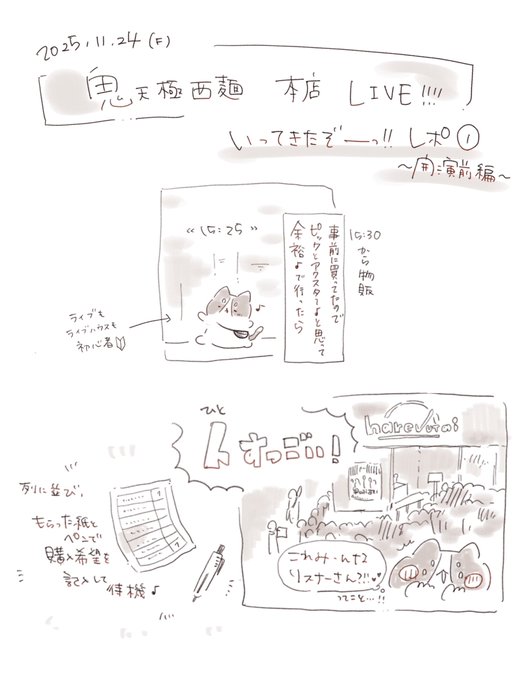 2025.11.24(F)
鬼天極西麺 本店 LIVE!!!!
いってきたぞーっ!! レポ①
〜開演前編〜
15:30から物販
事前に買ってたので
ピックとアクスタで♪と思って
余裕♪で行ったら
“15:25”
♪
ライブも
ライブハウスも
初心者
ひと
人すっごい!
harevutai
列に並び、
もらった紙と
ペンで
購入希望を
記入して
待機♪
これみーんな
リスナーさん?!!
ってこと…!!